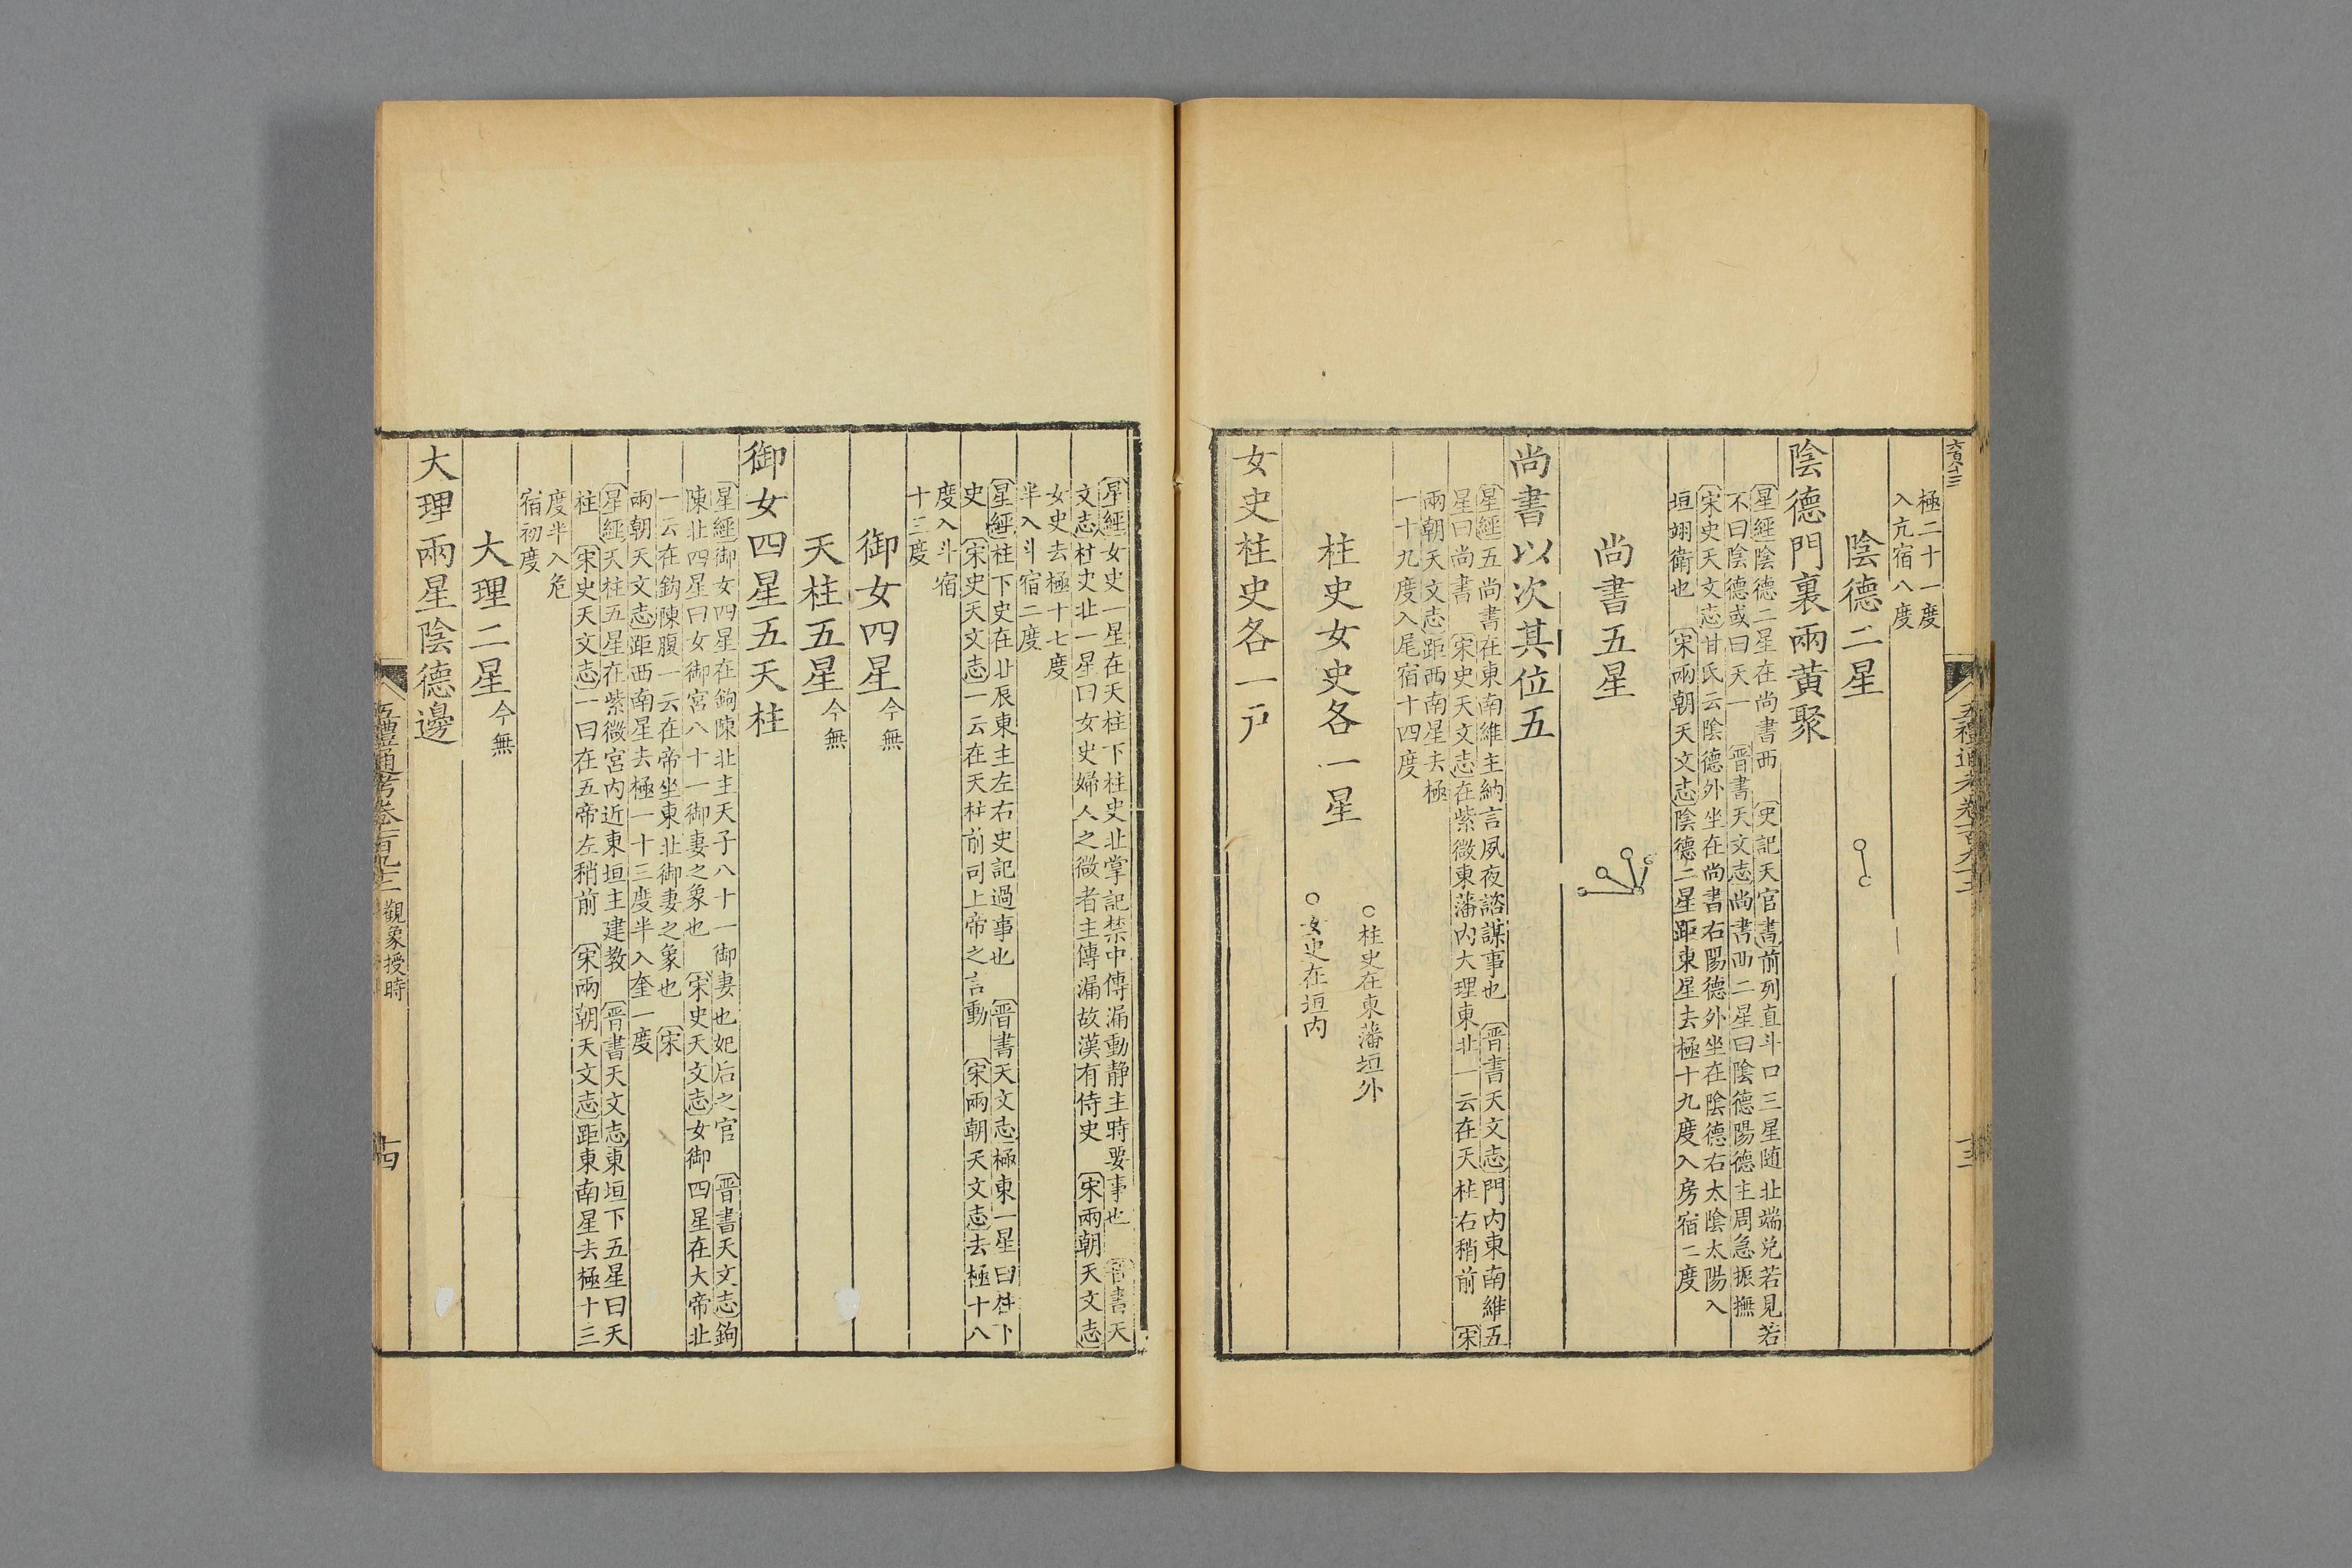 極二十一度
入亢宿八度
陰德二星
陰德門裏兩黃聚
星經陰德二星在尚書西 史記天官書前列直斗口三星隨北端兌若見若
不曰陰德或曰天一 晉書天文志尚書西二星曰陰德陽德主周急振撫
宋史天文志甘氏云陰德外坐在尚書右陽德外坐在陰德右太陰太陽入
垣翊衛也 宋兩朝天文志陰德二星距東星去極十九度入房宿二度
尚書五星
尚書以次其位五
星經五尚書在東南維主納言夙夜諮謀事也 晉書天文志門內東南維五
星曰尚書 宋史天文志在紫微東藩內大理東北一云在天柱右稍前 宋
兩朝天文志距西南星去極
一十九度入尾宿十四度
柱史女史各一星
柱史在東藩垣外
女史在垣內
女史柱史各一戶
星經女史一星在天柱下柱史北掌記禁中傳漏動靜主時要事也 晉書天
文志柱史北一星曰女史婦人之微者主傳漏故漢有侍史 宋兩朝天文志
女史去極十七度
半入斗宿二度
星經柱下史在北辰東主左右史記過事也 晉書天文志極東一星曰柱下
史 宋史天文志一云在天柱前司上帝之言動 宋兩朝天文志去極十八
度入斗宿
十三度
御女四星今無
天柱五星今無
御女四星五天柱
星經御女四星在鉤陳北主天子八十一御妻也妃后之官 晉書天文志鉤
陳北四星曰女御宮八十一御妻之象也 宋史天文志女御四星在大帝北
一云在鉤陳腹一云在帝坐東北御妻之象也 宋
兩朝天文志距西南星去極一十三度半入奎一度
星經天柱五星在紫微宮內近東垣主建教 晉書天文志東垣下五星曰天
柱 宋史天文志一曰在五帝左稍前 宋兩朝天文志距東南星去極十三
度半入危
宿初度
大理二星今無
大理兩星陰德邊
五禮通考卷一百九十二 觀象授時
十四